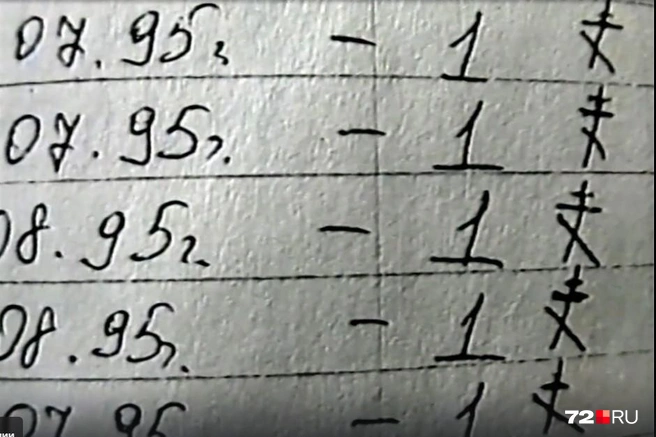 07.95г. - 1
07.95г. - 1
08.95г. - 1
08.95г. - 1
07.95 - 1
72.RU